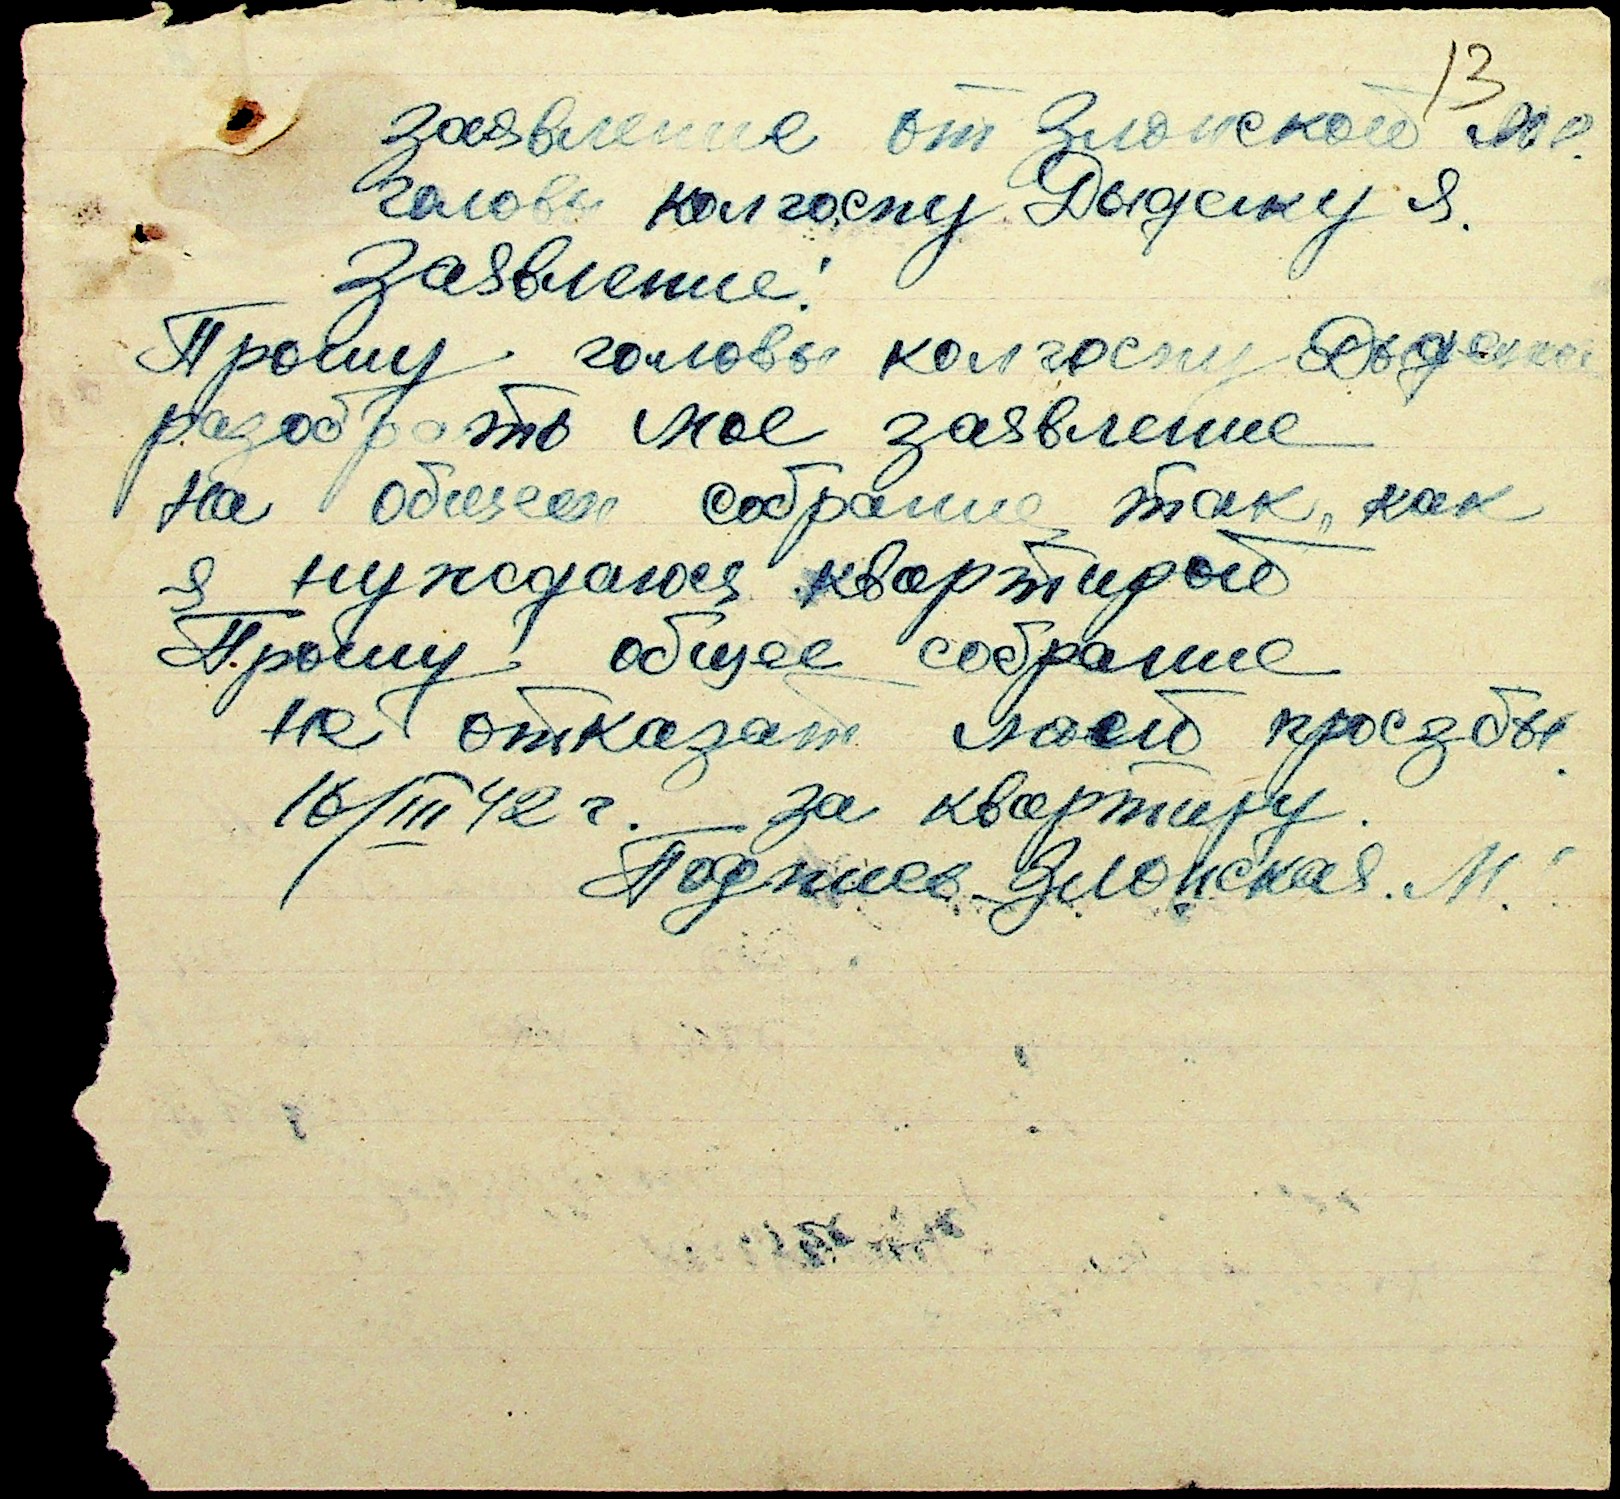 13
заявление от Злотской М.
головы колгоспу Дыденку Я.
Заявление!
Прошу головы колгоспу Дыденка
разобрать мое заявление
на общем собрание так, как
я нуждаюся квартирой
Прошу общее собрание
не отказат моей просзбы
16/III 42 г. за квартиру.
Подпись Злотская. М.!